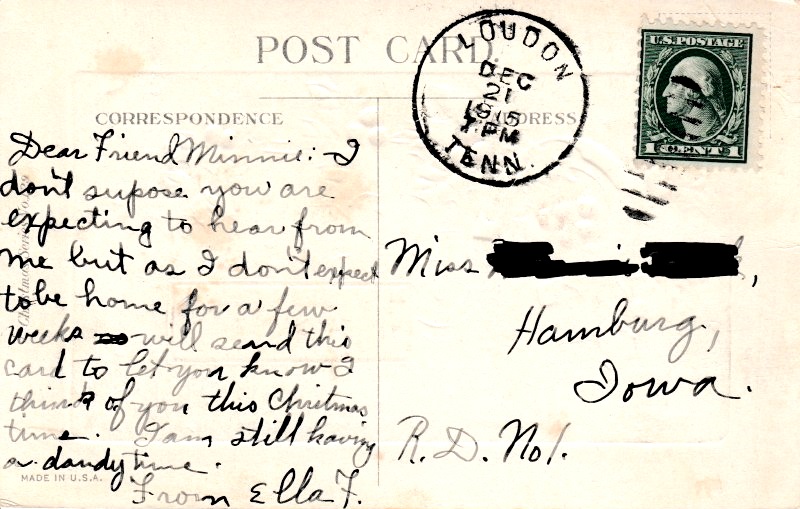 POST CARD
LOUDON
DEC
21
1915
7 PM
TENN.
U.S. POSTAGE
1 CENT 1
CORRESPONDENCE
ADDRESS
Dear Friend Minnie:- I
don't supose you are
expecting to hear from
me but as I don't expect
to be home for a few
weeks will send this
card to let you know I
think of you this Christmas
time. I am still having
a dandy time.
From Ella F.
Miss
Hamburg,
Iowa.
R.D. No1.
MADE IN U.S.A.